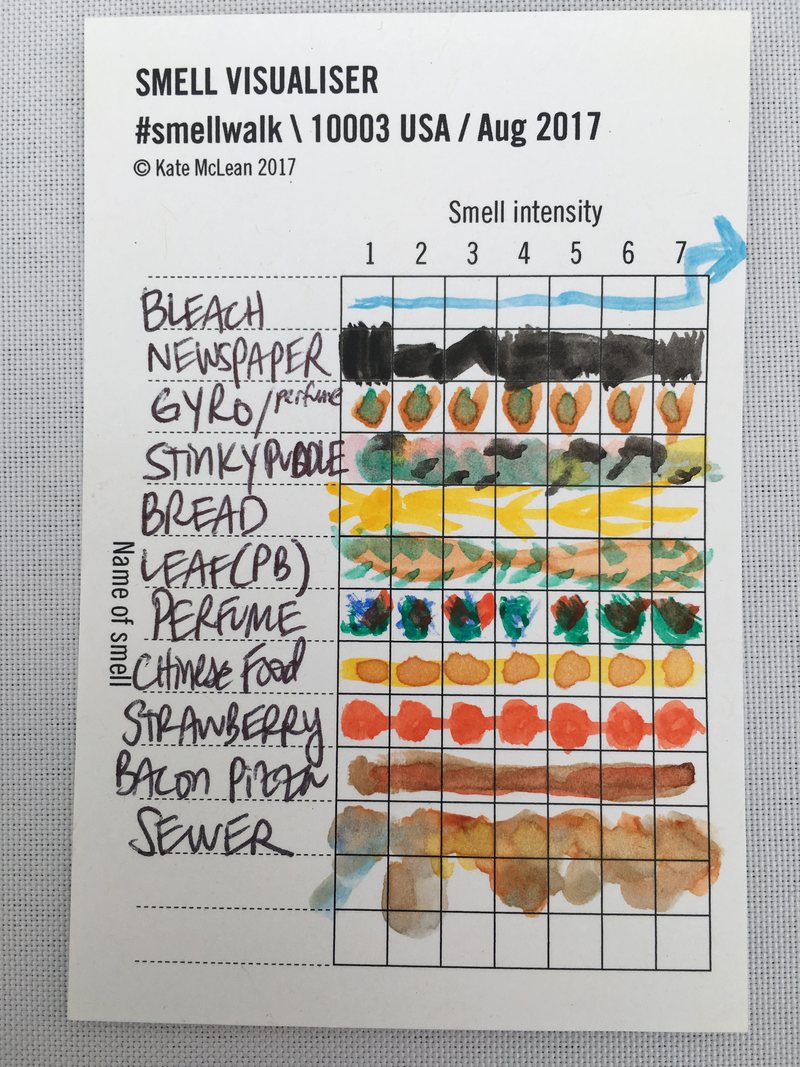 SMELL VISUALISER
#smellwalk \ 10003 USA / Aug 2017
© Kate McLean 2017
Smell intensity
1 2 3 4 5 6 7
Name of smell
BLEACH
NEWSPAPER
GYRO/perfume
STINKY PUDDLE
BREAD
LEAF(PB)
PERFUME
CHINESE FOOD
STRAWBERRY
BACON PIZZA
SEWER